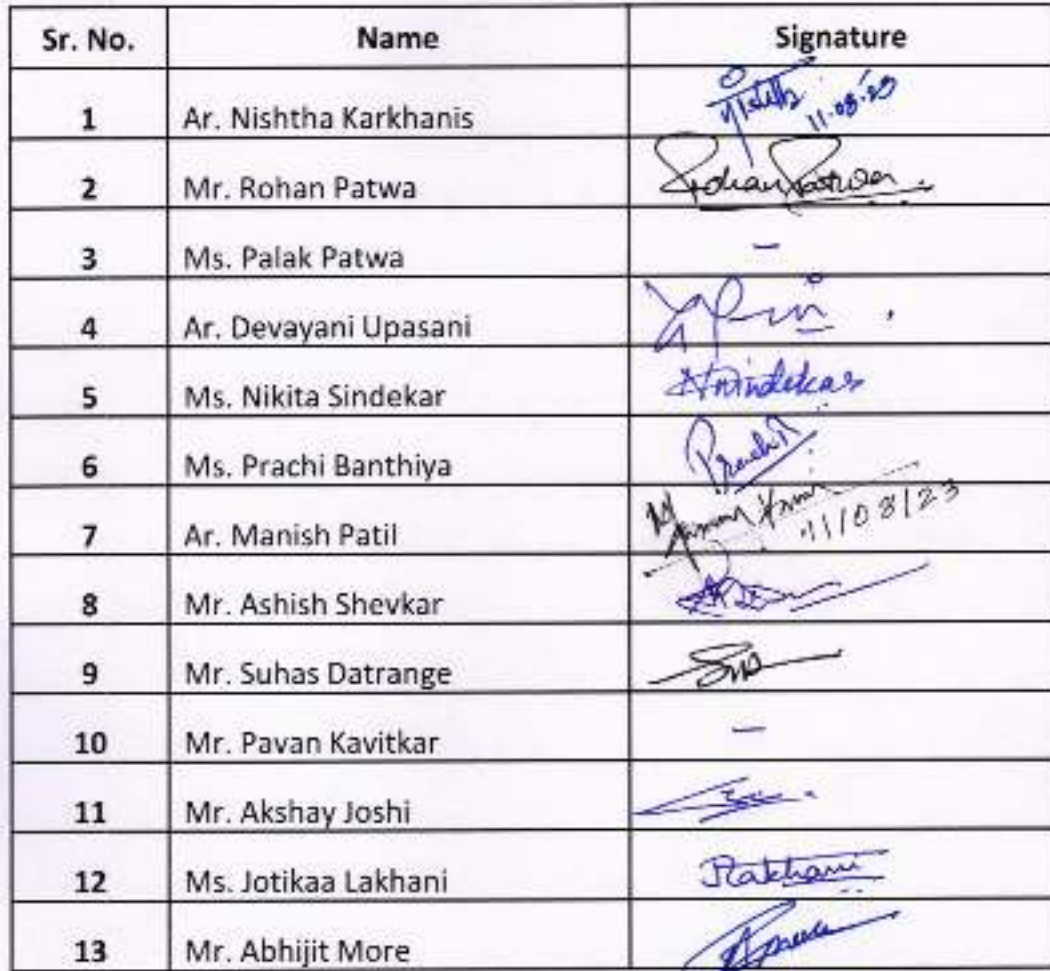 Sr. No. Name Signature
1 Ar. Nishtha Karkhanis 11.08.23
2 Mr. Rohan Patwa Rohan Patwa
3 Ms. Palak Patwa –
4 Ar. Devayani Upasani
5 Ms. Nikita Sindekar NSindekar
6 Ms. Prachi Banthiya
7 Ar. Manish Patil 11/08/23
8 Mr. Ashish Shevkar
9 Mr. Suhas Datrange
10 Mr. Pavan Kavitkar –
11 Mr. Akshay Joshi
12 Ms. Jotikaa Lakhani
13 Mr. Abhijit More